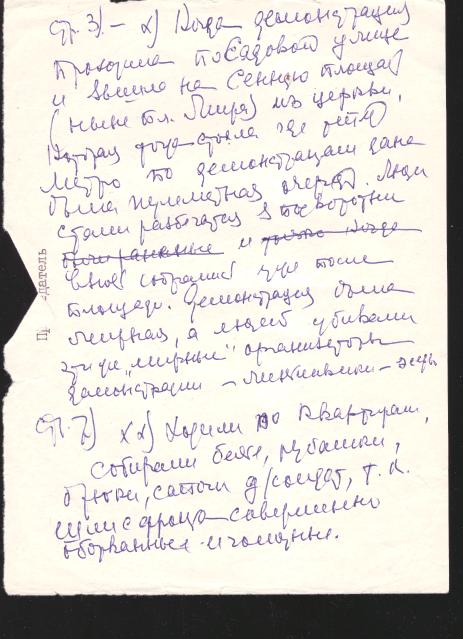 стр. 3) – х) Когда демонстрация
проходила по Садовой улице
и вышла на Сенную площадь
(ныне пл. Мира) из церкви,
которая тогда стояла где теперь
метро по демонстрации дана
была пулеметная очередь. Люди
стали разбегаться в подворотни
были раненные и только когда
вновь собрались уже после
площади. Демонстрация была
мирная, а людей убивали
эти же "мирные" организаторы
демонстрации – меньшевики – эсеры
датель
стр. 7) хх) Ходили по квартирам,
собирали белье, рубашки,
брюки, сапоги д/солдат, т.к.
шли с фронта совершенно
оборванные и голодные.